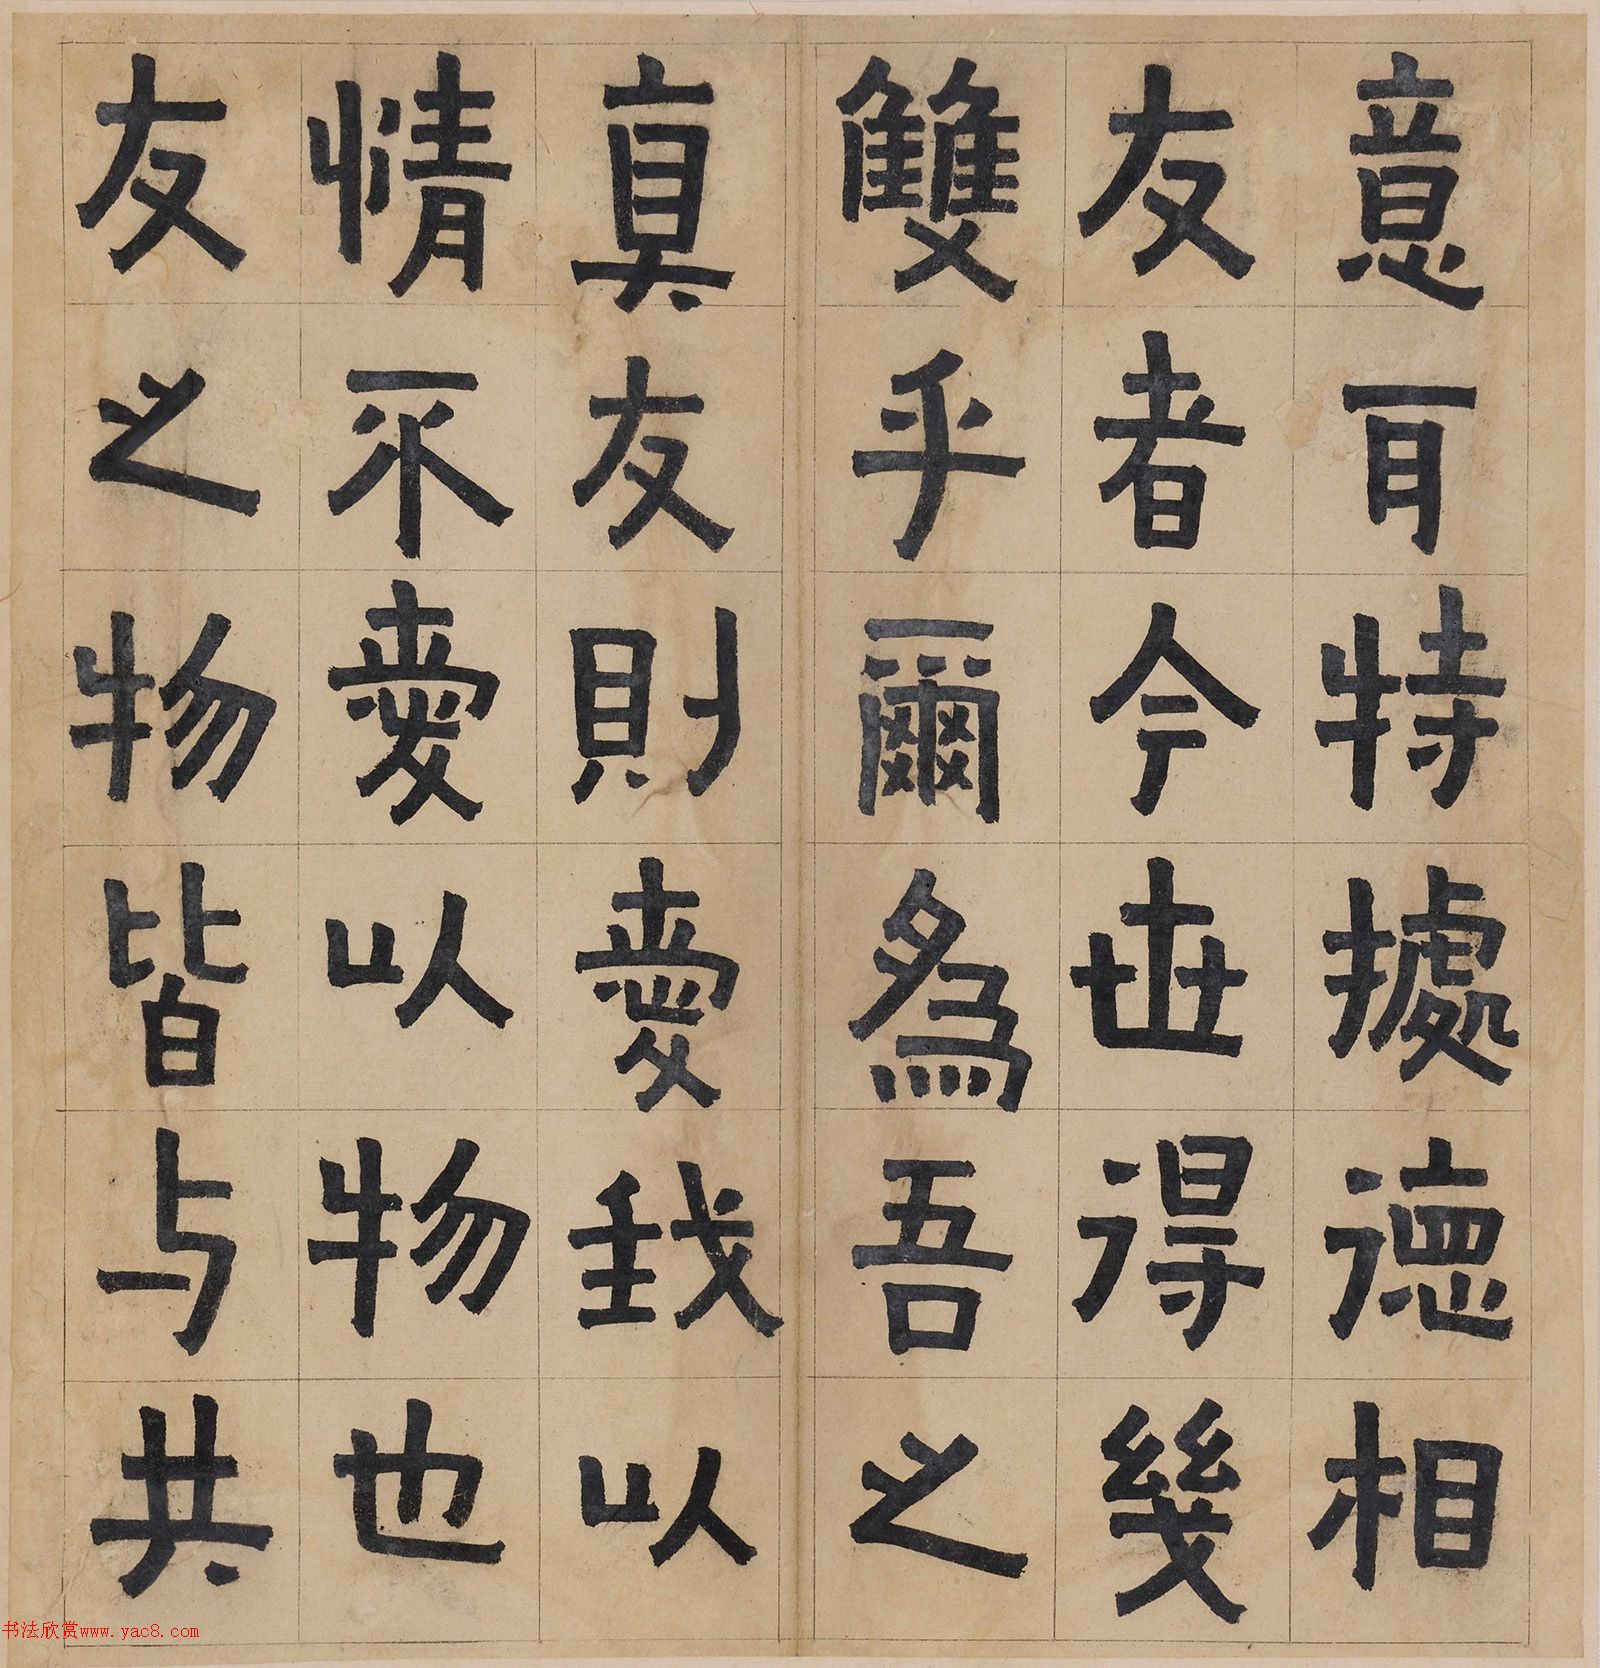 意耳特據德相
友者今世得幾
雙乎爾為吾之
真友則愛我以
情不愛以物也
友之物皆与共
书法欣赏www.yac8.com